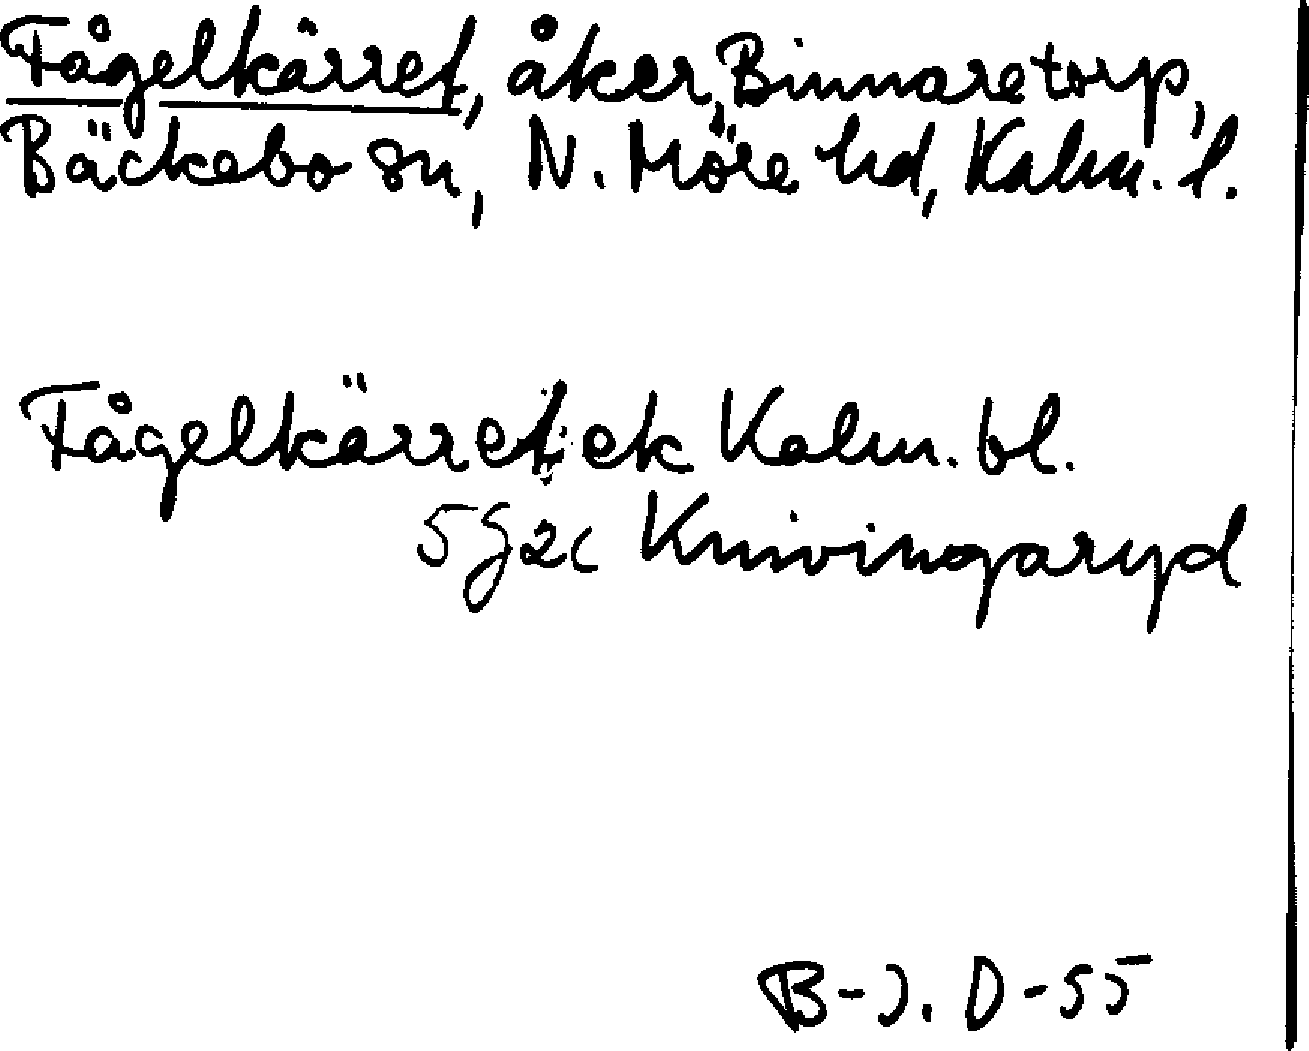 Fågelkärret, åker, Binnaretorp,
Bäckebo sn, N. Möre hd, Kalm. l.
Fågelkärret ek Kalm. bl.
5g2c Knivingaryd
B-J. D-55